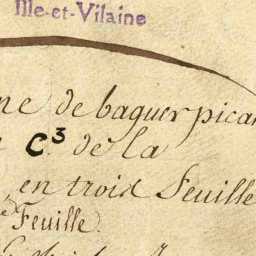 Ille-et-Vilaine
ne de baguer pican
C.3 de la
en trois Feuille
Feuille.